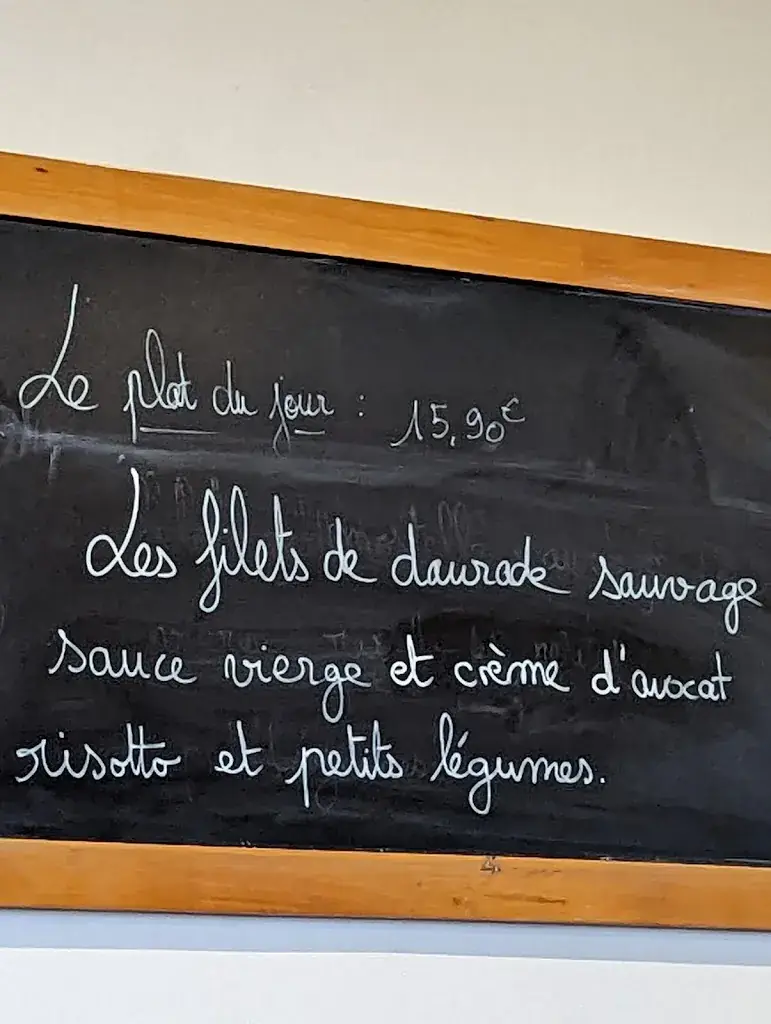 Le plat du jour : 15,90€
Les filets de daurade sauvage
sauce vierge et crème d'avocat
risotto et petits légumes.